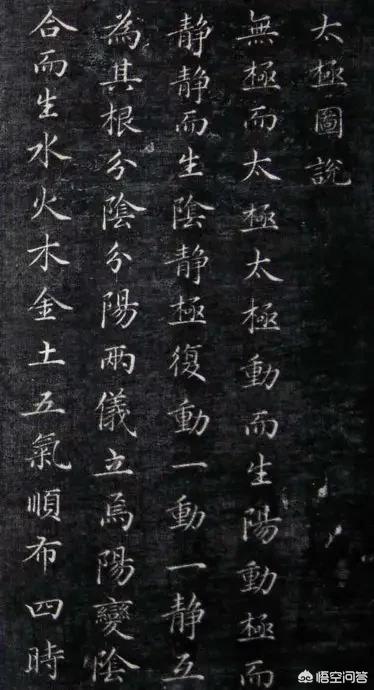 太極圖說
無極而太極太極動而生陽動極而
静静而生陰静極復動一動一静互
為其根分陰分陽兩儀立焉陽變陰
合而生水火木金土五氣順布四時
悟空问答